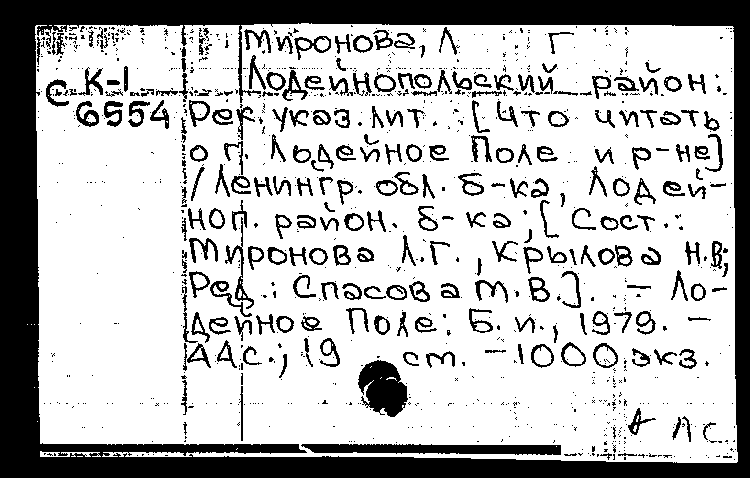 Миронова, Л Г
С К-1
6554
Лодейнопольский район:
Рек. указ. лит. : [Что читать
о г. Лодейное Поле и р-не]
/ Ленингр. обл. б-ка, Лодей-
ноп. район. б-ка; [Сост.:
Миронова Л.Г., Крылова Н.В;
Ред.: Спасова М.В.]. - Ло-
дейное Поле: Б.и., 1979. -
44с.; 19 см. - 1000 экз.